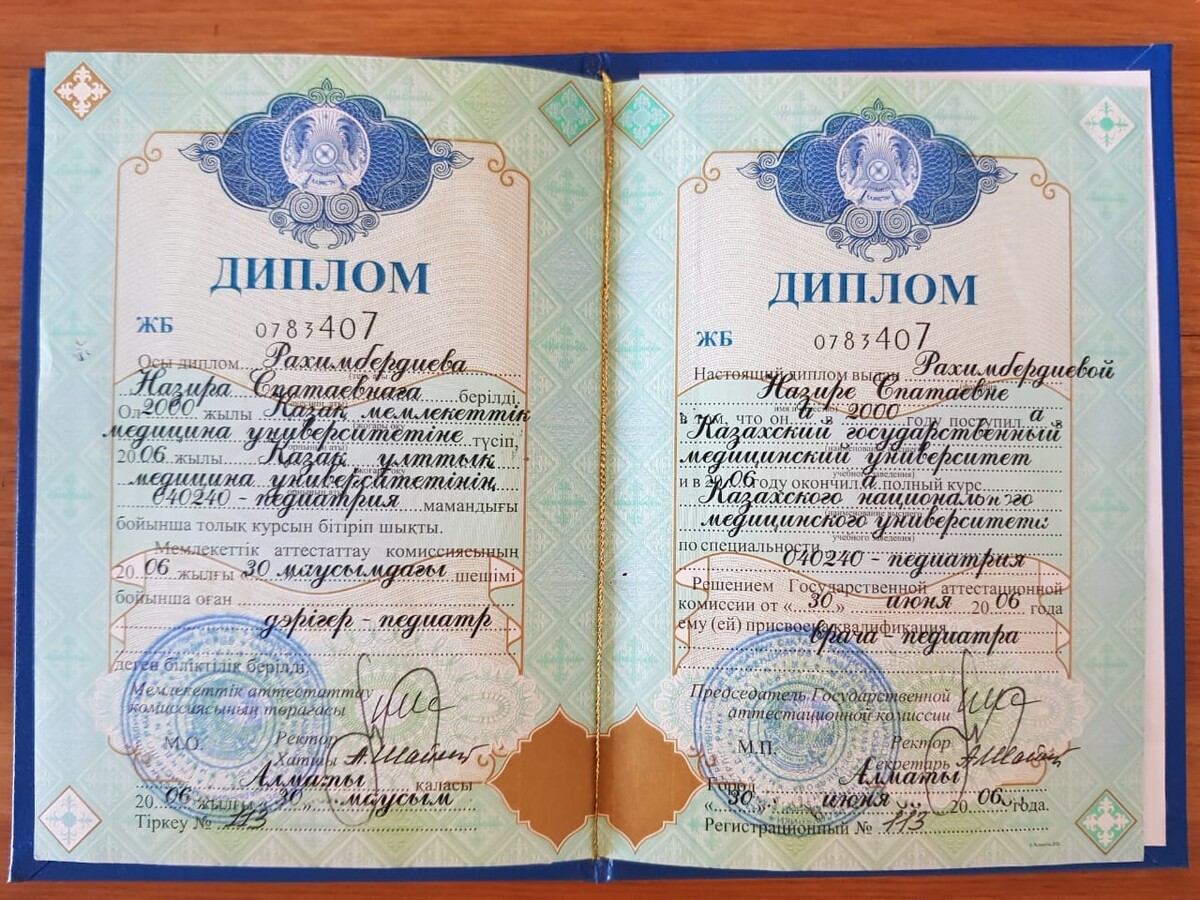 ДИПЛОМ
ЖБ 0783407
Осы диплом Рахимбердиева
Назира Спатаевнаға берілді
Ол 2000 жылы Казақ мемлекеттік
медицина университетіне түсіп,
2006 жылы Казақ ұлттық
медицина университетінің
040240 - педиатрия мамандығы
бойынша толық курсын бітіріп шықты.
Мемлекеттік аттестаттау комиссиясының
2006 жылғы «30» маусымдағы шешімі
бойынша оған
дәрігер - педиатр
деген біліктілік берілді.
Мемлекеттік аттестаттау
комиссиясының төрағасы
М.О. Ректор
Хатшы
Алматы қаласы
2006 жылғы «30» маусым
Тіркеу № 113
ДИПЛОМ
ЖБ 0783407
Настоящий диплом выдан Рахимбердиевой
Назире Спатаевне
в том, что он а в 2000 году поступил а в
Казахский государственный
медицинский университет
и в 2006 году окончил а полный курс
Казахского национального
медицинского университета
по специальности
040240 - педиатрия
Решением Государственной аттестационной
комиссии от «30» июня 2006 года
ему (ей) присвоена квалификация
врача - педиатра
Председатель Государственной
аттестационной комиссии
М.П. Ректор
Секретарь
Город Алматы
«30» июня 2006 года.
Регистрационный № 113